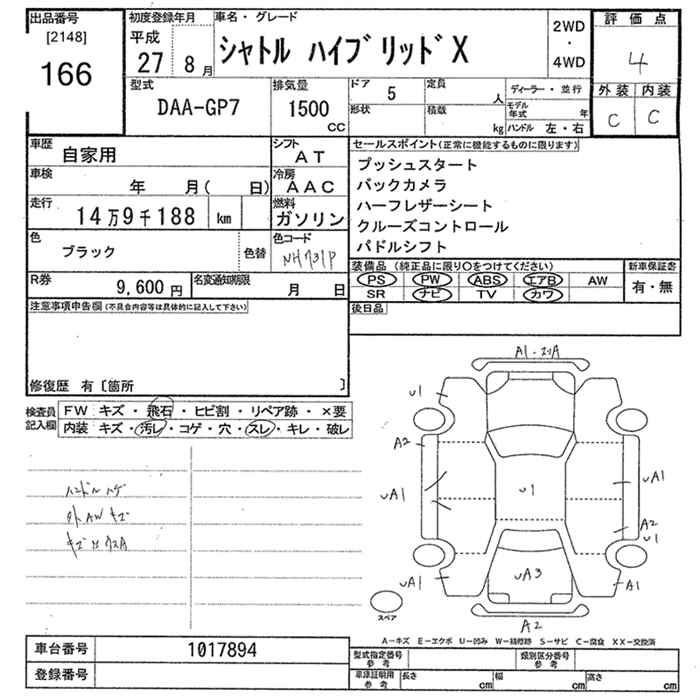 出品番号 初度登録年月 車名・グレード 評価点
[2148] 平成 2WD
166 27 8月 シャトル ハイブリッドX ・ 4
4WD
型式 排気量 ドア 5 定員 人 ディーラー・並行 外装 内装
DAA-GP7 1500 cc 形状 積載 kg モデル年式 年 C C
ハンドル 左・右
車歴 自家用 シフト AT セールスポイント(正常に機能するものに限ります)
車検 年 月( 日) 冷房 AAC プッシュスタート
バックカメラ
走行 14万9千188 km 燃料 ガソリン ハーフレザーシート
クルーズコントロール
色 ブラック 色替 色コード NH731P パドルシフト
R券 9,600円 名変通知期限 月 日
装備品(純正品に限り○をつけてください) 新車保証書
PS PW ABS エアB AW 有・無
SR ナビ TV カワ
注意事項申告欄(不具合内容等は具体的に記入して下さい) 後日品
修復歴 有〔箇所 〕
検査員記入欄 FW キズ・飛石・ヒビ割・リペア跡・×要
内装 キズ・汚レ・コゲ・穴・スレ・キレ・破レ
ハンドルハゲ
外AWキズ
A1・スリA
U1
A2
UA1
U1
UA1
A2
U1
UA1
UA3
A1
A2
スペア
A-キズ E-エクボ U-凹み W-補修跡 S-サビ C-腐食 XX-交換済
車台番号 1017894 型式指定番号 参考 類別区分番号 参考
登録番号 車庫証明用 参考 長さ cm 幅 cm 高さ cm